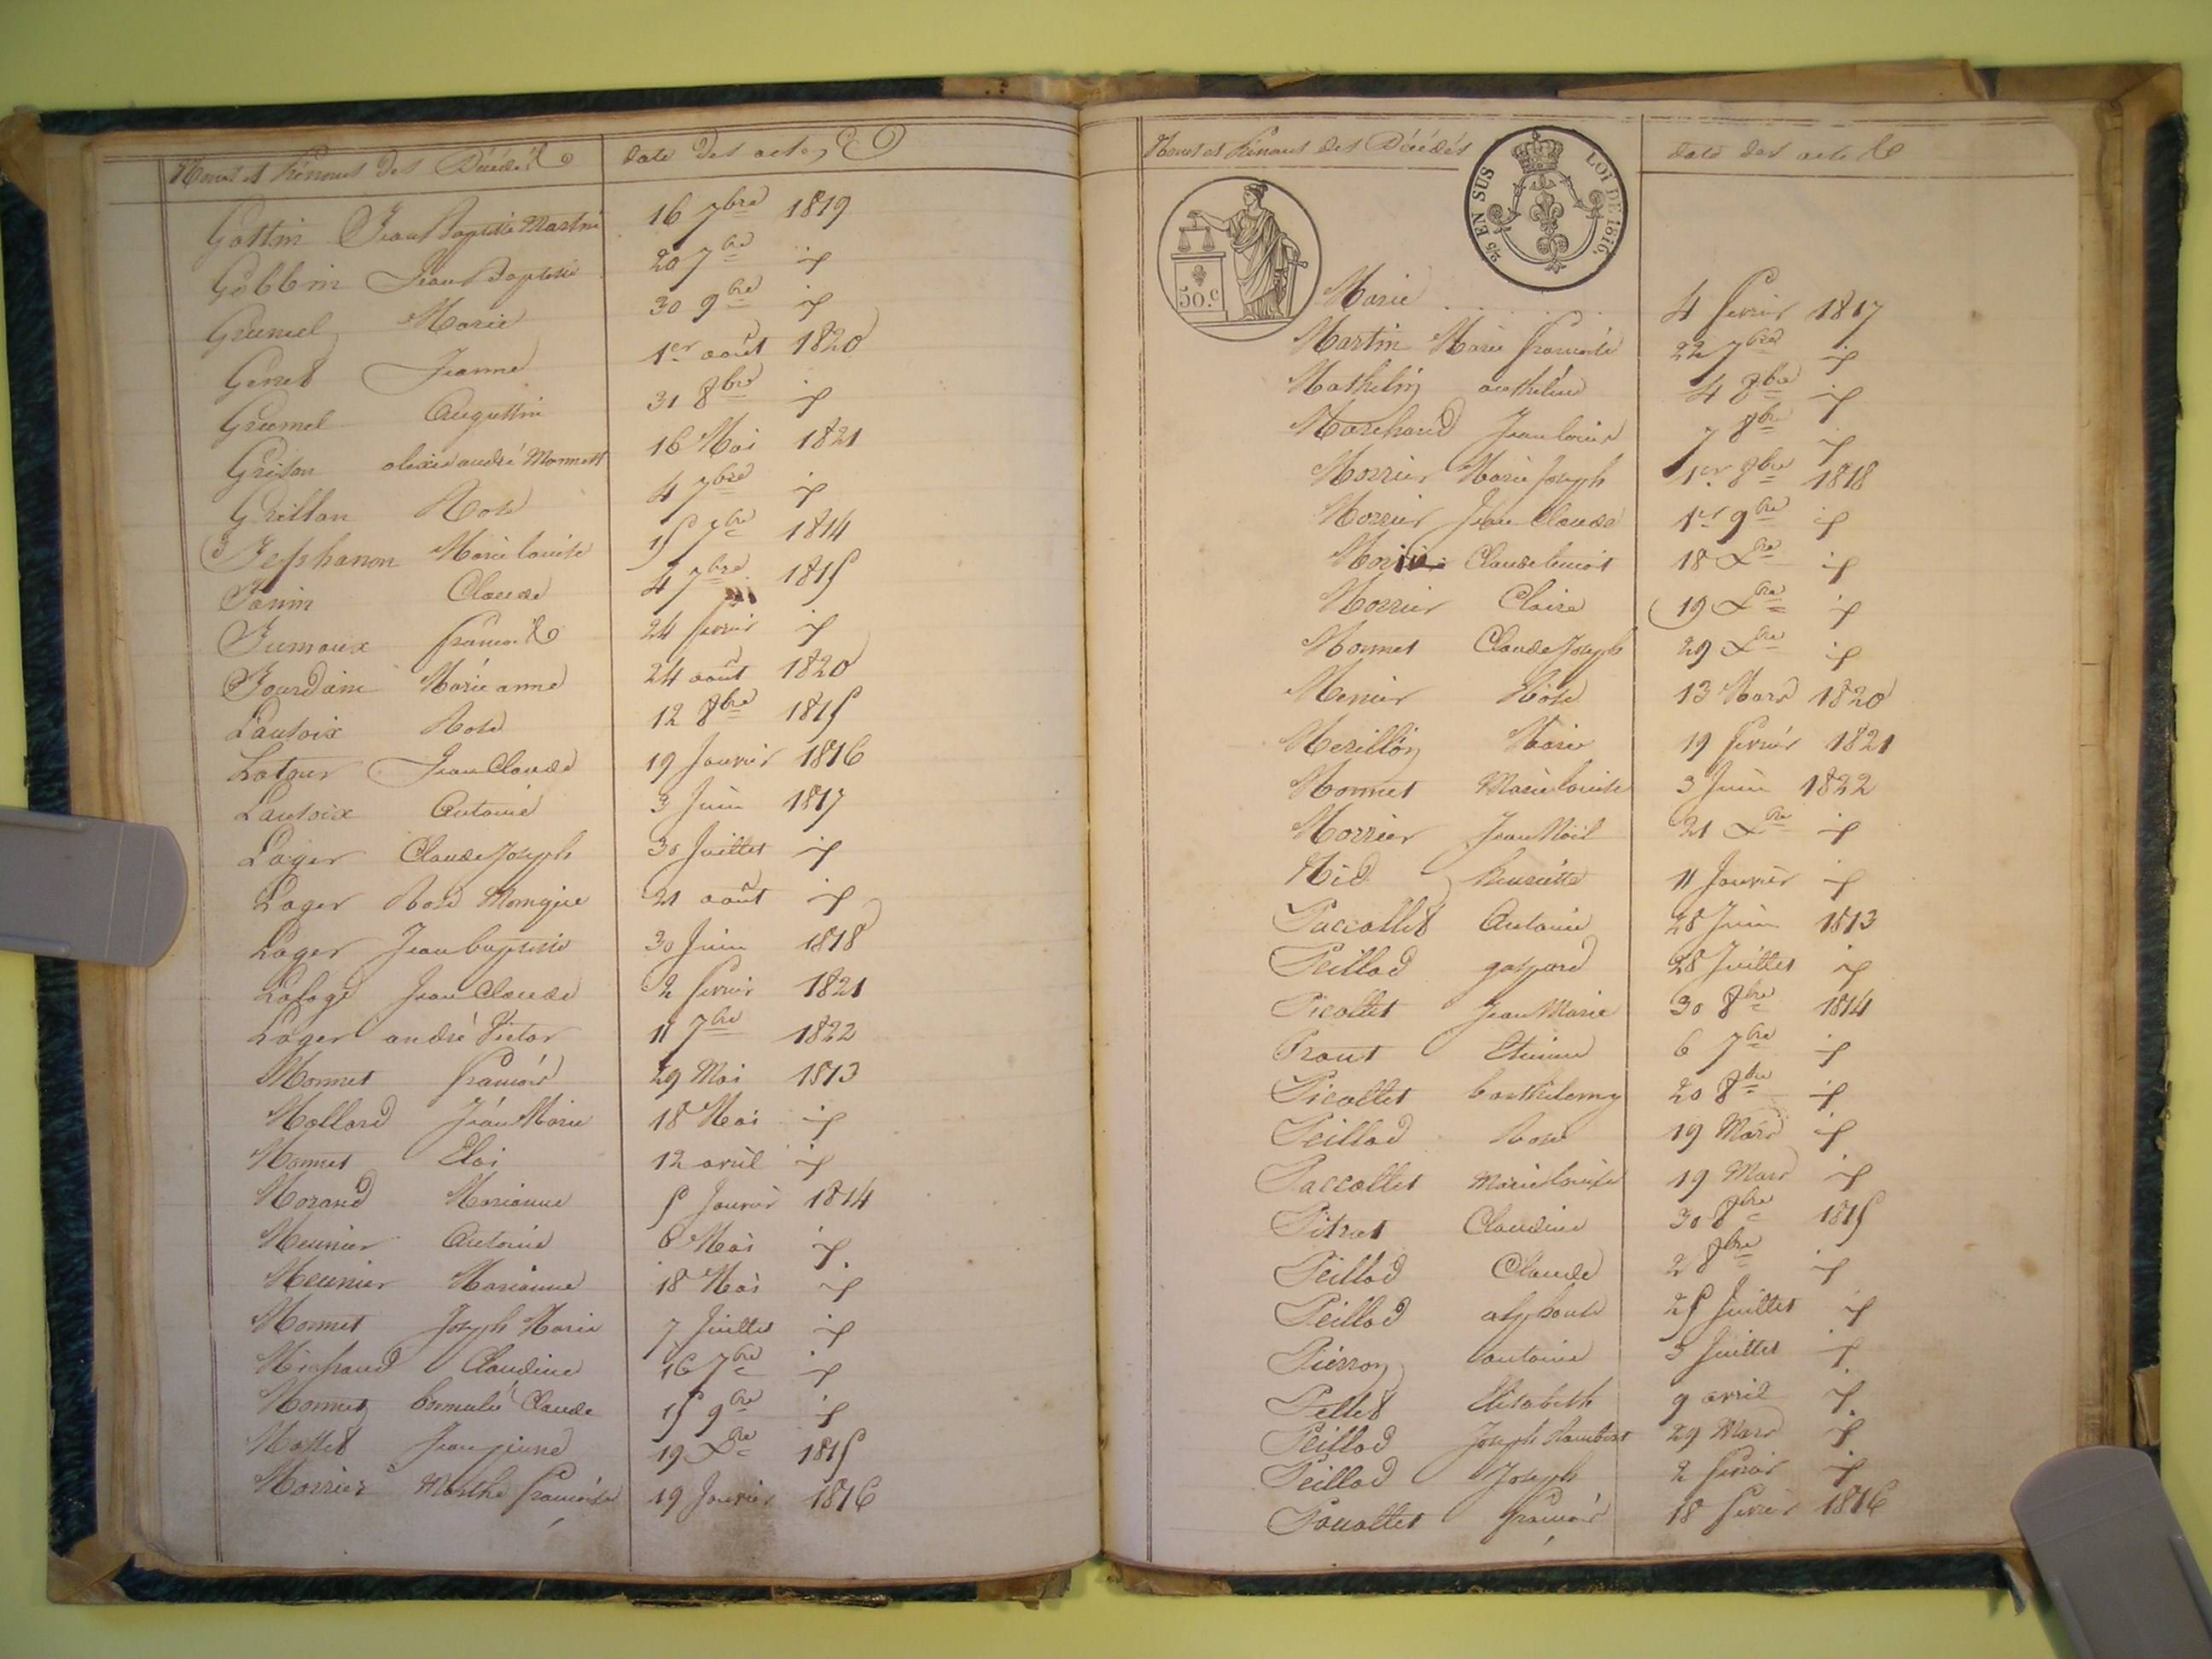 Noms et Prénoms des Décédés
date des actes
Gottin Jean Baptiste Martin 16 7bre 1819
Gobbin Jean Baptiste 20 7bre id
Grumel Marie 30 9bre id
Genet Jeanne 1er août 1820
Grumel Augustin 31 8bre id
Grison alexis andré 16 Mai 1821
Grillon Rose 4 7bre id
Marie louise 15 7bre 1814
Janin Claude 4 7bre 1815
Jumaux françois 24 fevrier id
Jourdain Marie anne 24 août 1820
Lautoix Rose 12 8bre 1815
Latour Jean Claude 19 Janvier 1816
Lautoix Antoine 3 Juin 1817
Lager Claude Joseph 30 Juillet id
Lager Rose Monique 21 août id
Lager Jean baptiste 30 Juin 1818
Lafage Jean Claude 2 fevrier 1821
Lager andré Victor 11 7bre 1822
Monnet françois 29 Mai 1813
Mollard Jean Marie 18 Mai id
Monnet Eloi 12 avril id
Morand Marianne 5 Janvier 1814
Meunier Antoine 6 Mai id
Meunier Marianne 18 Mai id
Monnet Joseph Marie 7 Juillet id
Michaud Claudine 16 7bre id
Monnet Claude 15 9bre id
Mottet Jean 19 Xbre 1815
Morrier Marthe françoise 19 Janvier 1816
Noms et Prénoms des Décédés
date des actes
2/5 EN SUS LOI DE 1816.
50.c
Marie . . . . . 4 fevrier 1817
Martin Marie françoise 22 7bre id
Mathelin anthelme 4 8bre id
Marchand Jean louis 7 8bre id
Morrier Marie Joseph 1er 8bre 1818
Morrier Jean Claude 1er 9bre id
Claude benoit 18 Xbre id
Morrier Claire 19 Xbre id
Monnet Claude Joseph 29 Xbre id
Menier Rose 13 Mars 1820
Merillon Marie 19 fevrier 1821
Monnet Marie louise 3 Juin 1822
Morrier Jean Noël 21 Xbre id
Nid henriette 11 Janvier id
Paccollet Antoine 28 Juin 1813
Peillod gaspard 28 Juillet id
Picollet Jean Marie 30 8bre 1814
Prout Etienne 6 7bre id
Picollet barthelemy 20 8bre id
Peillod Rose 19 Mars id
Paccollet Marie louise 19 Mars id
Pitrat Claudine 30 8bre 1815
Peillod Claude 2 8bre id
Peillod alphonse 25 Juillet id
Pierron antoine 3 Juillet id
Pellet Elisabeth 9 avril id
Peillod Joseph Rambert 29 Mars id
Peillod Joseph 2 fevrier id
françois 18 fevrier 1816